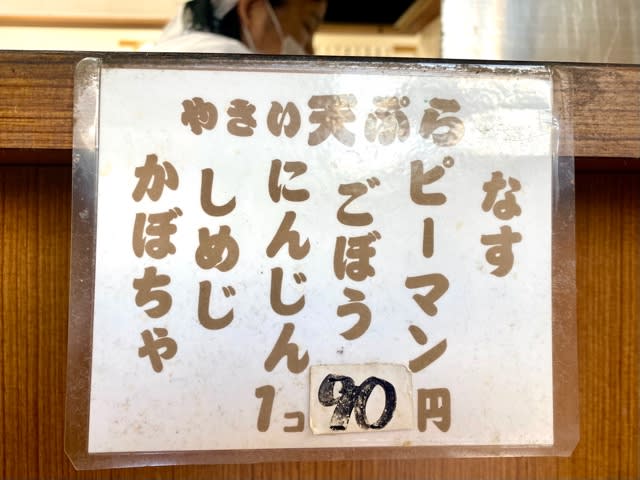 やさい天ぷら
なす
ピーマン
ごぼう
にんじん
しめじ
かぼちゃ
1コ90円